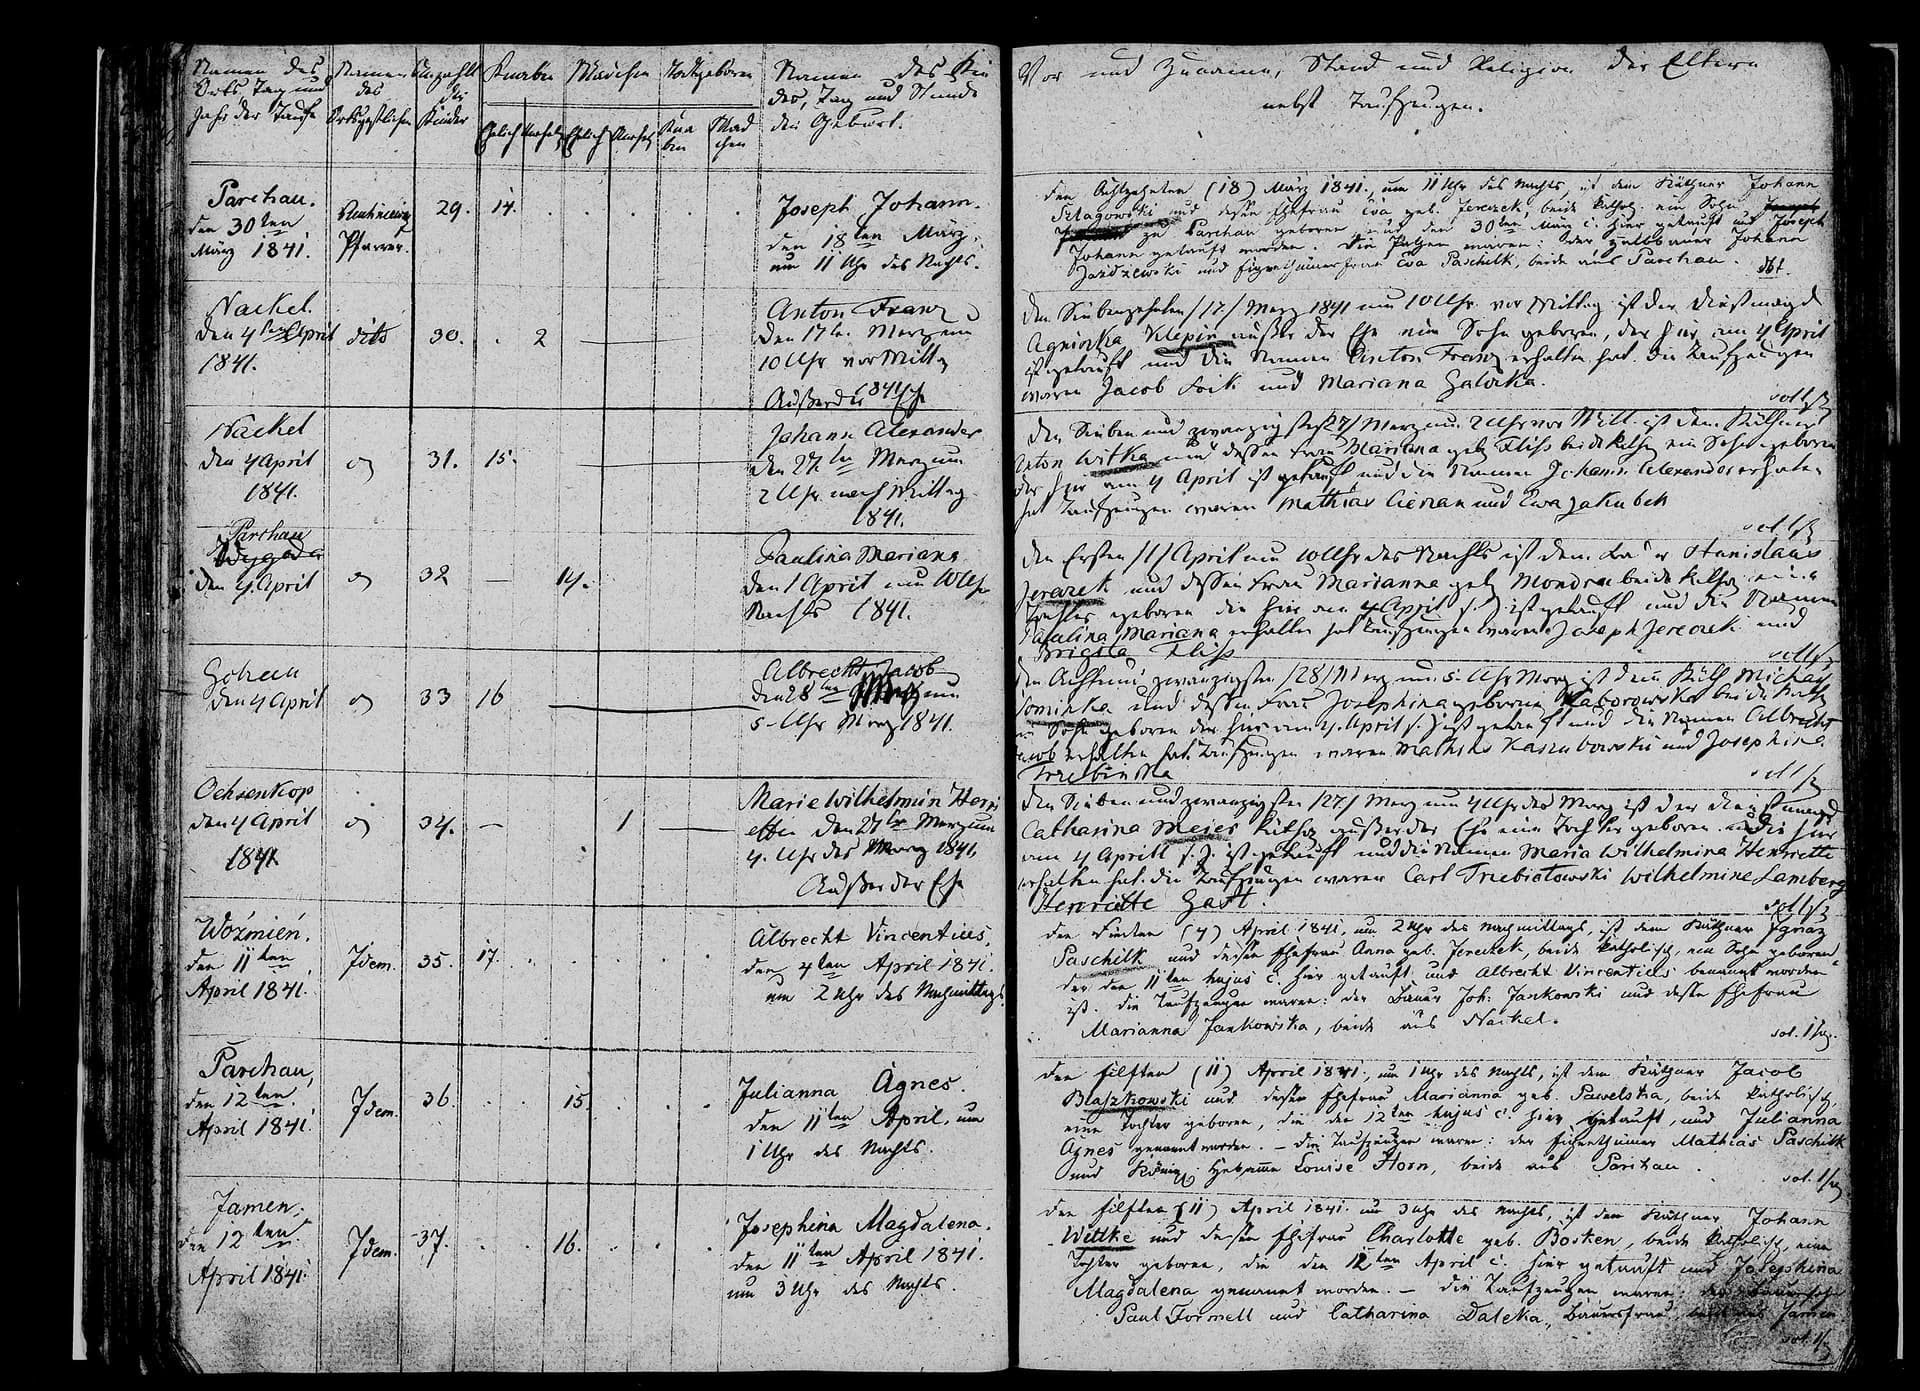 Namen des Orts, Tag und Jahr der Taufe
Namen des Ortsgeistlichen
Anzahl der Kinder
Knaben
Mädchen
Todtgeboren
Ehelich Unehel Ehelich Unehel Knaben Mädchen
Namen des Kindes, Tag und Stunde der Geburt.
Vor und Zuname, Stand und Religion der Eltern
nebst Taufzeugen.
Parchau.
den 30ten
März 1841.
Pfarrer.
29. 14.
Joseph Johann.
den 18ten März,
um 11 Uhr des Nachts.
Den Achtzehnten (18) März 1841, um 11 Uhr des Nachts, ist dem Käthner Johann
und dessen Ehefrau Eva geb. Jereczek, beide kathol. ein Sohn
zu Parchau geboren und den 30ten März c. hier getauft und Joseph
Johann getauft worden. Die Pathen waren: der Johann
und Eva Paschilk, beide aus Parchau.
Nackel.
den 4ten April
1841.
dito
30. 2
Anton Franz
den 17ten Merz um
10 Uhr vor Mittg
1841
Außer der Ehe
Den Siebenzehnten /17/ Merz 1841 um 10 Uhr vor Mittag ist der Dienstmagd
Klepin außer der Ehe ein Sohn geboren, der hier am 4 April
ist getauft und die Namen Anton Franz erhalten hat. Die Taufzeugen
waren Jacob und Mariana
Nackel
den 4 April
1841.
31. 15.
Johann Alexander
den 27ten Merz um
2 Uhr nach Mittag
1841.
Den Sieben und zwanzigsten /27/ Merz um 2 Uhr Mitt. ist dem Käthner
Anton Witka und dessen Frau Mariana geb. Fliss beide kathol ein Sohn geboren
der hier am 4 April ist getauft und die Namen Johann Alexander erhalten
hat Taufzeugen waren Mathias und Ewa
Parchau
den 4. April
32 14.
Paulina Mariana
den 1 April um 10 Uhr
Nachts 1841.
Den Ersten /1/ April um 10 Uhr des Nachts ist dem Stanislaus
Jereczek und dessen Frau Marianna geb Mondra beide kathol eine
Tochter geboren die hier am 4 April ist getauft und die Namen
Paulina Mariana erhalten hat Taufzeugen waren Joseph Jereczek und
Brigita Fliss
den 4 April
33 16
Albrecht Jacob
den 28ten Merz um
5 Uhr Morg 1841.
Den Acht und zwanzigsten /28/ Merz um 5 Uhr Morg ist dem Käth Michael
und dessen Frau Josephina geborene beide kathl
ein Sohn geboren der hier am 4. April ist getauft und die Namen Albrecht
Jacob erhalten hat. Taufzeugen waren Mathias Kaszubowski und Josephine
Trzebinska
Ochsenkop
den 4 April
1841
34. 1
Marie Wilhelmin Henri
etta den 27ten Merz um
4. Uhr des Morg 1841.
Außer der Ehe
Den Sieben und zwanzigsten /27/ Merz um 4 Uhr des Morg ist der Dienstmagd
Catharina Meier kathol außer der Ehe eine Tochter geboren die hier
am 4 April ist getauft und die Namen Maria Wilhelmina Henriette
erhalten hat. die Taufzeugen waren Carl Trzebiatowski Wilhelmine Lamberg
Henriette Gast.
Wozmien.
den 11ten
April 1841.
Idem.
35. 17.
Albrecht Vincentius,
den 4ten April 1841.
um 2 Uhr des Nachmittags
Den Vierten (4) April 1841, um 2 Uhr des Nachmittags, ist dem Käthner Ignaz
Paschilk und dessen Ehefrau Anna geb. Jereczek, beide katholisch, ein Sohn geboren,
der den 11ten hujus c. hier getauft und Albrecht Vincentius benannt worden
ist. Die Taufzeugen waren: der Bauer Joh: Jankowski und dessen Ehefrau
Marianna Jankowska, beide aus Nackel.
Parchau,
den 12ten
April 1841.
Idem.
36. 15.
Julianna Agnes.
den 11ten April, um
1 Uhr des Nachts.
Den Eilften (11) April 1841, um 1 Uhr des Nachts, ist dem Käthner Jacob
Blaszkowski und dessen Ehefrau Marianna geb. Pawelska, beide katholisch,
eine Tochter geboren, die den 12ten hujus c. hier getauft, und Julianna
Agnes genannt worden. – Die Taufzeugen waren: der Eigenthümer Mathias Paschilk
und Hebamme Louise Horn, beide aus Parchau.
Jamen,
den 12ten
April 1841.
Idem.
37. 16.
Josephina Magdalena.
den 11ten April 1841.
um 3 Uhr des Nachts.
Den Eilften (11) April 1841. um 3 Uhr des Nachts, ist dem Käthner Johann
Wittke und dessen Ehefrau Charlotte geb. Bosken, beide katholisch, eine
Tochter geboren, die den 12ten April c. hier getauft und Josephina
Magdalena genannt worden. – Die Taufzeugen waren:
Paul Formell und Catharina Daleka, Bauersfrau, beide aus Jamen